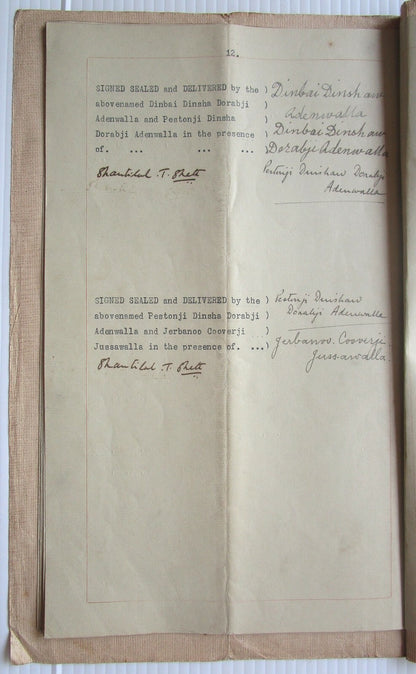 12.
SIGNED SEALED and DELIVERED by the ) Dinbai Dinshaw
abovenamed Dinbai Dinsha Dorabji ) Adenwalla
Adenwalla and Pestonji Dinsha )
Dorabji Adenwalla in the presence ) Dinbai Dinshaw
of. ... ... ... ) Dorabji Adenwalla
Shantilal .T. Sheth Pestonji Dinshaw Dorabji
Adenwalla
SIGNED SEALED and DELIVERED by the ) Pestonji Dinshaw
abovenamed Pestonji Dinsha Dorabji ) Dorabji Adenwalla
Adenwalla and Jerbanoo Cooverji )
Jussawalla in the presence of. ...) Jerbanoo. Cooverji
Shantilal .T. Sheth Jussawalla.